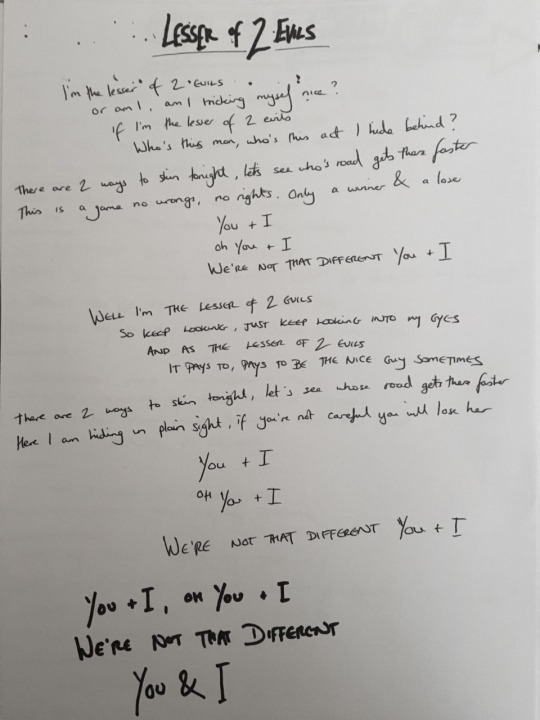 LESSER of 2 EVILS
I'm the lesser of 2 EVILS
or am I, am I tricking myself nice?
if I'm the lesser of 2 evils
Who's this man, who's this act I hide behind?
There are 2 ways to skin tonight, let's see who's road gets there faster
This is a game no wrongs, no rights. Only a winner & a lose
You + I
oh You + I
WE'RE NOT THAT DIFFERENT You + I
WELL I'M THE LESSER OF 2 EVILS
SO KEEP LOOKING, JUST KEEP LOOKING INTO MY EYES
AND AS THE LESSER OF 2 EVILS
IT PAYS TO, PAYS TO BE THE NICE GUY SOMETIMES
there are 2 ways to skin tonight, let's see whose road gets there faster
Here I am hiding in plain sight, if you're not careful you will lose her
You + I
OH You + I
WE'RE NOT THAT DIFFERENT You + I
You + I, OH You + I
WE'RE NOT THAT DIFFERENT
You & I